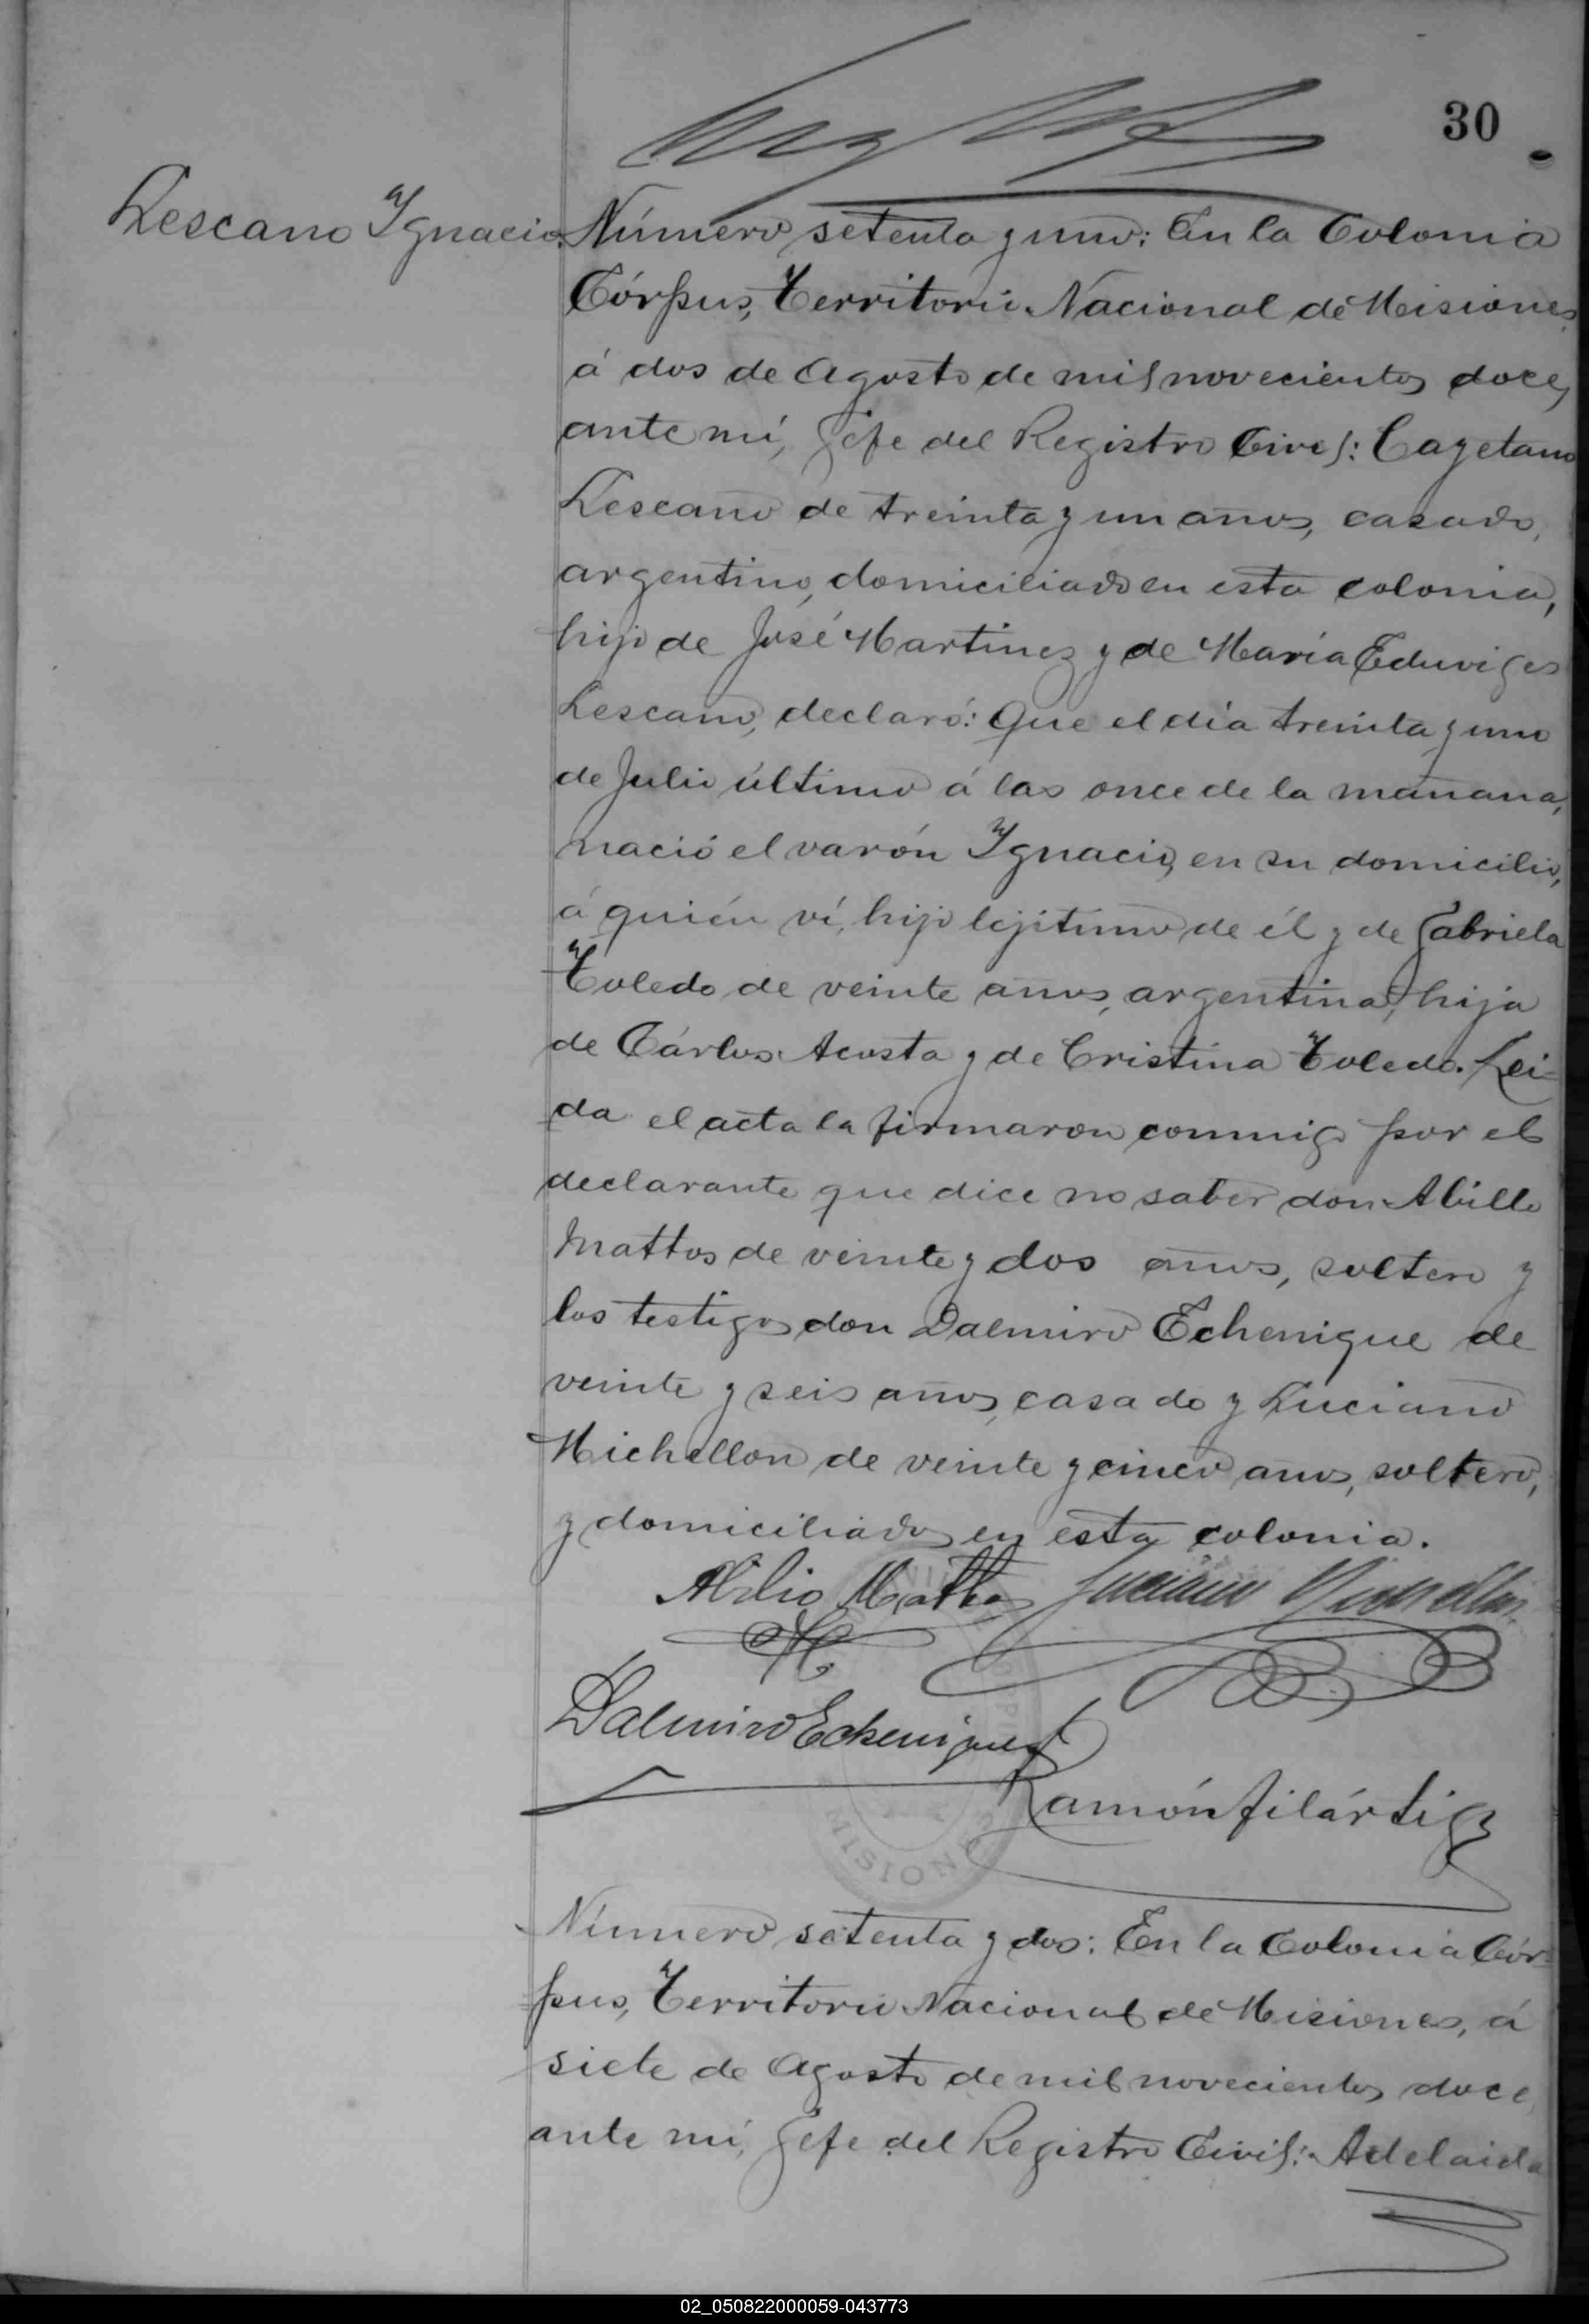 30
Lescano Ygnacio
Número setenta y uno: En la Colonia
Córpus, Territorio Nacional de Misiones,
á dos de Agosto de mil novecientos doce,
ante mí, Jefe del Registro Civil: Cayetano
Lescano de treinta y un años, casado,
argentino, domiciliado en esta colonia,
hijo de José Martinez y de María Eduviges
Lescano, declaró: Que el día treinta y uno
de Julio último á las once de la mañana,
nació el varón Ygnacio, en su domicilio,
á quién ví, hijo lejítimo de él y de Gabriela
Toledo de veinte años, argentina, hija
de Cárlos Acosta y de Cristina Toledo. Lei-
da el acta la firmaron conmigo por el
declarante que dice no saber don Abilio
Mattos de veinte y dos años, soltero y
los testigos don Dalmiro Echenique de
veinte y seis años, casado y Luciano
Michellon de veinte y cinco años, soltero,
y domiciliados en esta colonia.
Abilio Mattos Luciano Michellon
Dalmiro Echenique
Ramón Filártiga
MISIONES
Número setenta y dos: En la Colonia Cór-
pus, Territorio Nacional de Misiones, á
siete de Agosto de mil novecientos doce,
ante mí, Jefe del Registro Civil: Adelaida
02_050822000059-043773